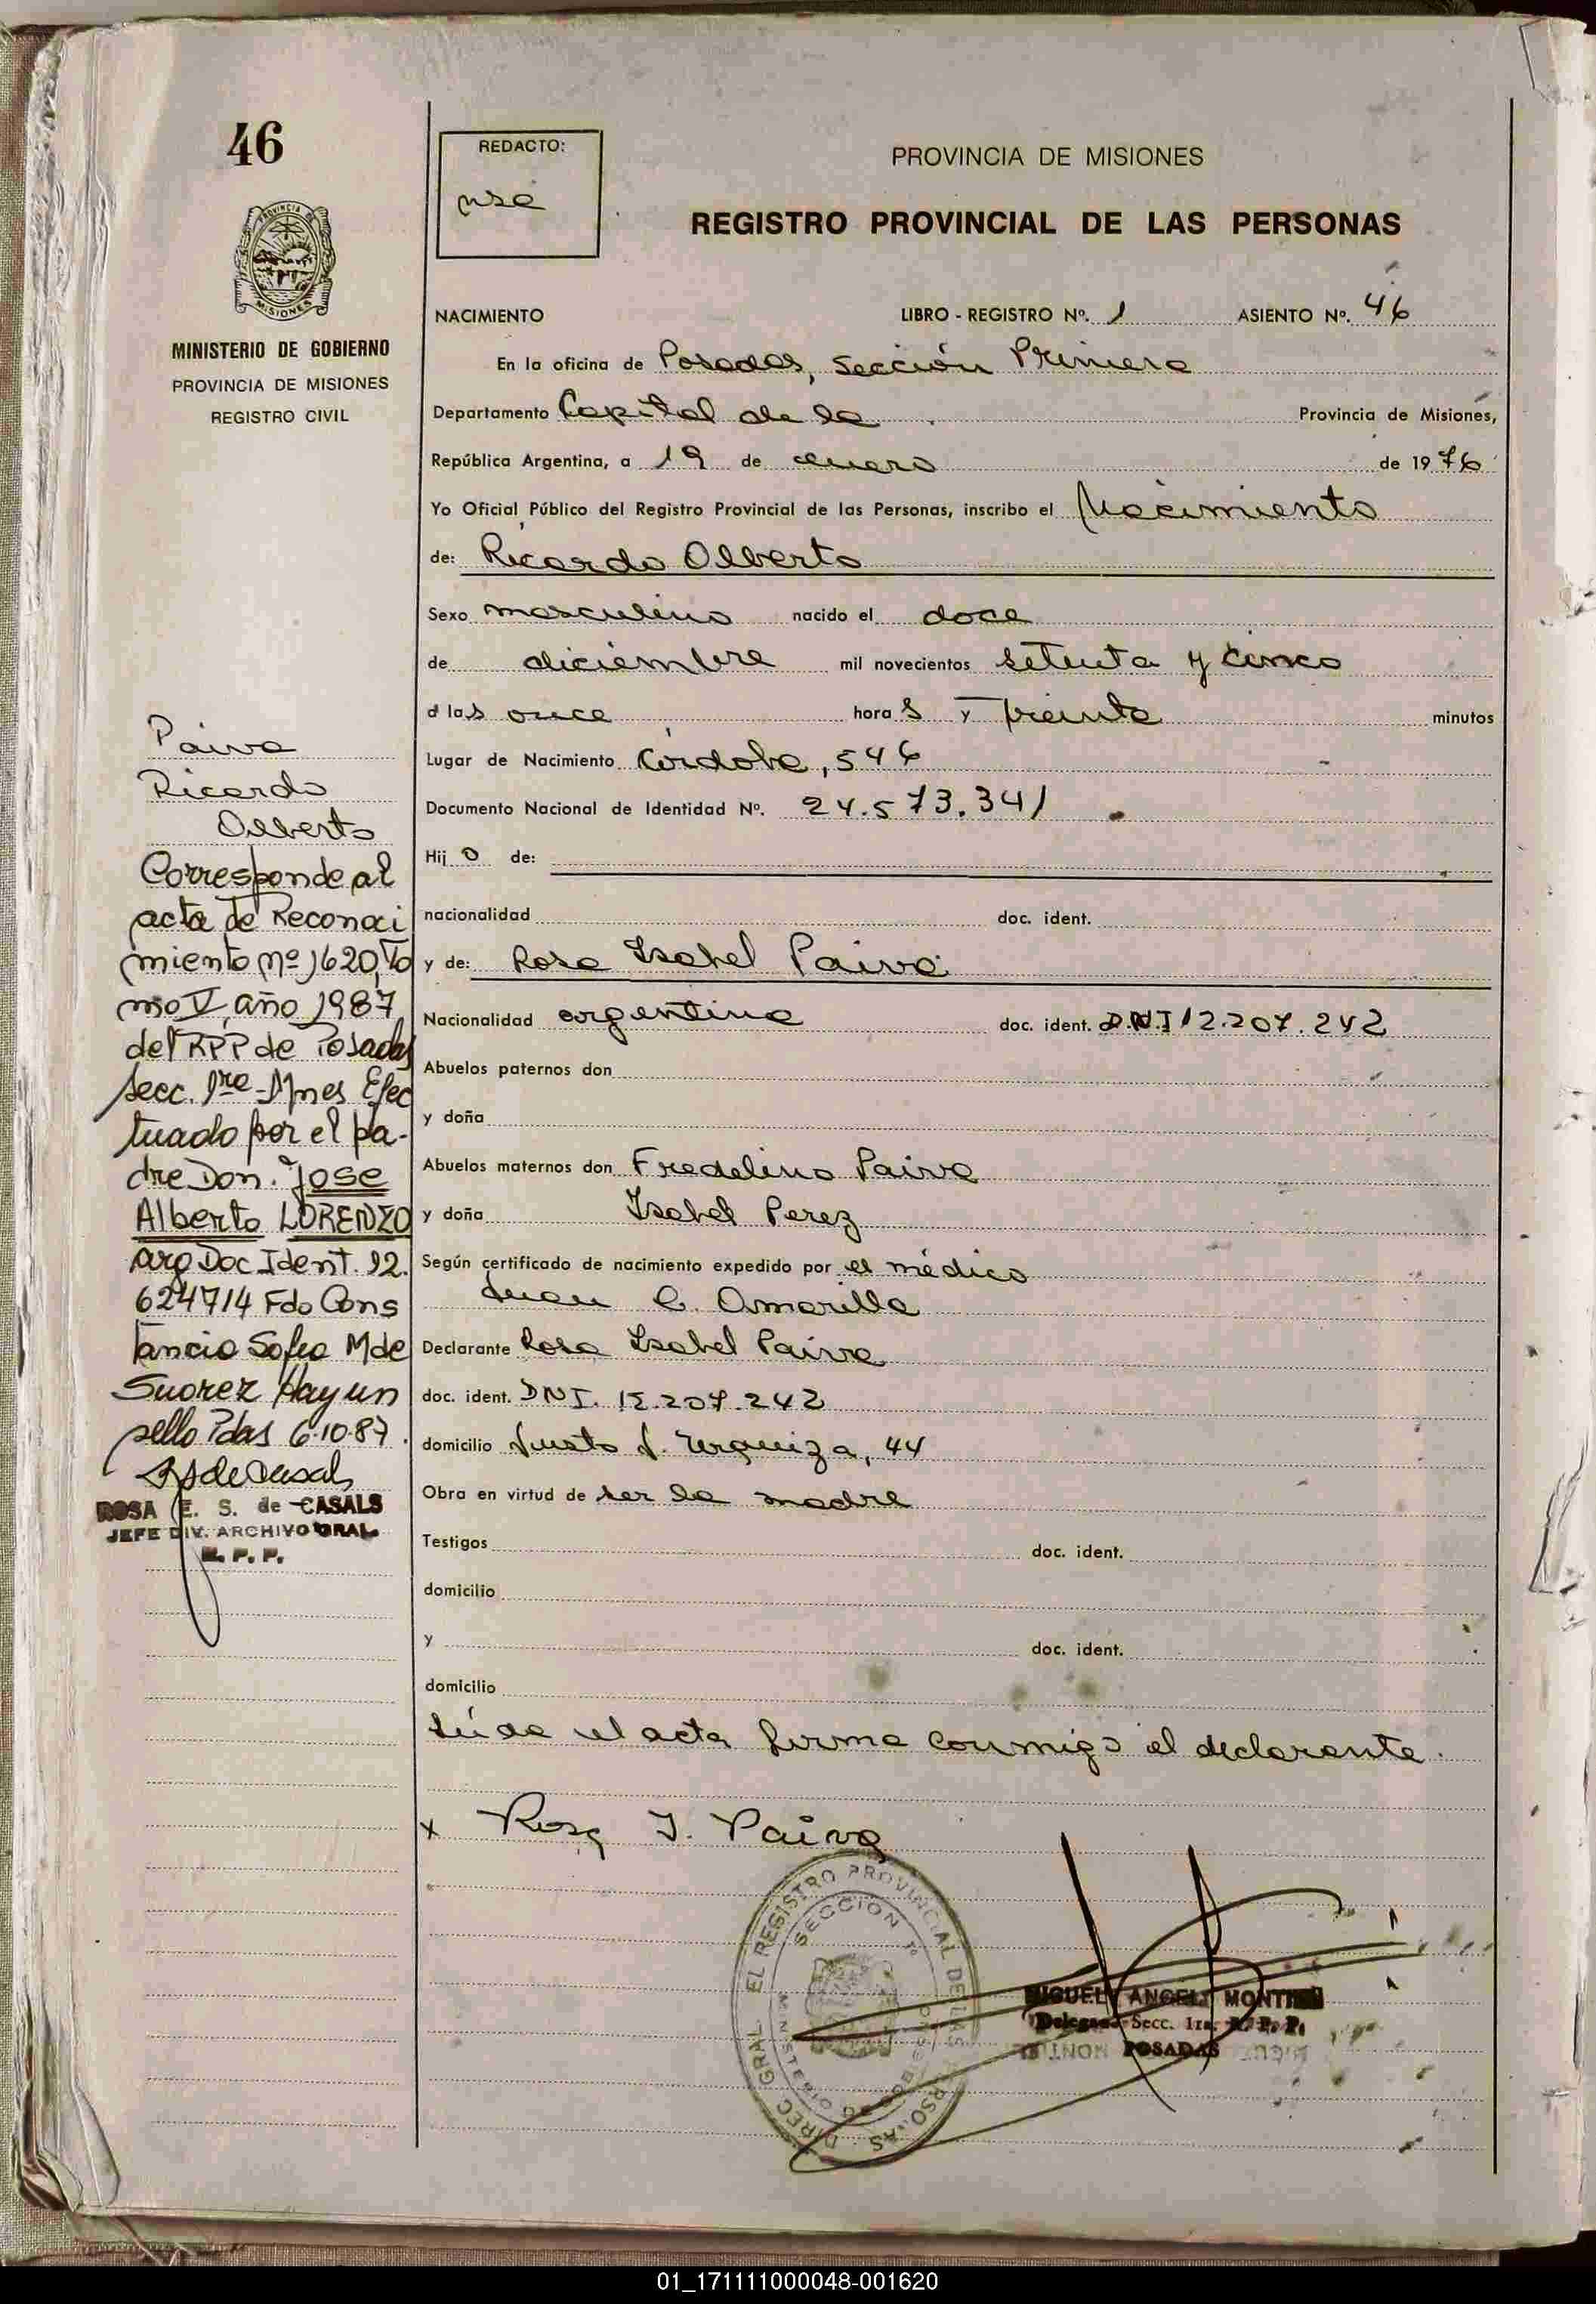 46
PROVINCIA DE
MISIONES
MINISTERIO DE GOBIERNO
PROVINCIA DE MISIONES
REGISTRO CIVIL
REDACTO:
PROVINCIA DE MISIONES
REGISTRO PROVINCIAL DE LAS PERSONAS
NACIMIENTO LIBRO - REGISTRO Nº. 1 ASIENTO Nº. 46
En la oficina de Posadas, Sección Primera
Departamento Capital de la Provincia de Misiones,
República Argentina, a 19 de enero de 1976
Yo Oficial Público del Registro Provincial de las Personas, inscribo el Nacimiento
de: Ricardo Alberto
Sexo masculino nacido el doce
de diciembre mil novecientos setenta y cinco
a las once horas y treinta minutos
Lugar de Nacimiento Córdoba, 546
Documento Nacional de Identidad Nº. 24.573.341
Hijo de:
nacionalidad doc. ident.
y de: Rosa Isabel Paiva
Nacionalidad argentina doc. ident. D.N.I 12.207.242
Abuelos paternos don
y doña
Abuelos maternos don Fredelino Paiva
y doña Isabel Perez
Según certificado de nacimiento expedido por el médico
Juan C. Amarilla
Declarante Rosa Isabel Paiva
doc. ident. DNI. 12.207.242
domicilio Justo J. Urquiza, 44
Obra en virtud de ser la madre
Testigos doc. ident.
domicilio
y doc. ident.
domicilio
Leída el acta firma conmigo el declarante.
x Rosa I. Paiva
DIREC. GRAL. EL REGISTRO PROVINCIAL DE LAS PERSONAS
SECCION 1º
MINISTERIO DE GOBIERNO
MIGUEL ANGEL
Delegado Secc. 1ra. R. P. P.
POSADAS
Paiva
Ricardo
Alberto
Corresponde al
acta de Reconoci
miento nº 1620, To
mo V, año 1987
del RPP de Posadas
Secc. 1ra - Mnes Efec
tuado por el pa-
dre Don. Jose
Alberto LORENZO
arg Doc Ident. 12.
624714 Fdo Cons
tancio Sofia M de
Suarez Hay un
sello Pdas 6-10-87.
ROSA E. S. de CASALS
JEFE DIV. ARCHIVO GRAL.
R. P. P.
01_171111000048-001620